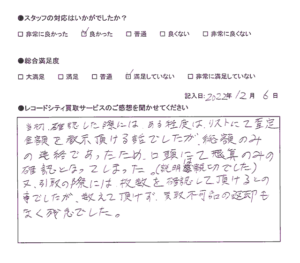 ●スタッフの対応はいかがでしたか？
□ 非常に良かった ☑ 良かった □ 普通 □ 良くない □ 非常に良くない
●総合満足度
□ 大満足 □ 満足 □ 普通 ☑ 満足していない □ 非常に満足していない
記入日: 2022年 12月 6日
●レコードシティ買取サービスのご感想を聞かせてください
当初、確認した際には ある程度は、リストにて査定
金額を教示頂ける話でしたが、総額のみ
の連絡であったため、口頭にて概算のみの
確認となってしまった。(説明は親切でした)
又、引取の際には枚数を確認して頂けるとの
事でしたが、数えて頂けず、買取不可品の返却も
なく残念でした。